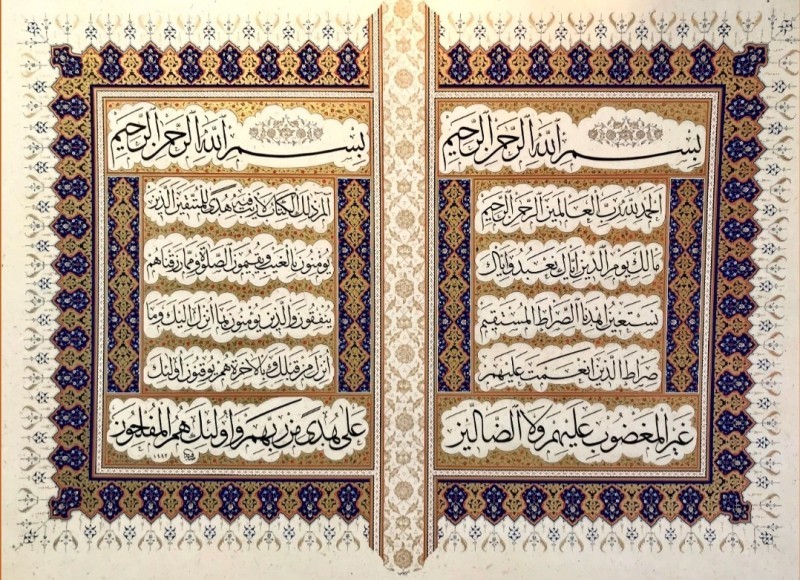 بِسْمِ اللهِ الرَّحْمنِ الرَّحِيمِ
الحَمْدُ للهِ رَبِّ العَالَمِينَ الرَّحْمنِ الرَّحِيمِ
مَالِكِ يَوْمِ الدِّينِ إِيَّاكَ نَعْبُدُ وَإِيَّاكَ
نَسْتَعِينُ اهْدِنَا الصِّرَاطَ المُسْتَقِيمَ
صِرَاطَ الَّذِينَ أَنْعَمْتَ عَلَيْهِمْ
غَيْرِ المَغْضُوبِ عَلَيْهِمْ وَلَا الضَّالِّينَ
بِسْمِ اللهِ الرَّحْمنِ الرَّحِيمِ
الم ذلِكَ الكِتَابُ لَا رَيْبَ فِيهِ هُدًى لِلْمُتَّقِينَ الَّذِينَ
يُؤْمِنُونَ بِالغَيْبِ وَيُقِيمُونَ الصَّلوةَ وَمِمَّا رَزَقْنَاهُمْ
يُنْفِقُونَ وَالَّذِينَ يُؤْمِنُونَ بِمَا أُنْزِلَ إِلَيْكَ وَمَا
أُنْزِلَ مِنْ قَبْلِكَ وَبِالآخِرَةِ هُمْ يُوقِنُونَ أُولئِكَ
عَلَى هُدًى مِنْ رَبِّهِمْ وَأُولئِكَ هُمُ المُفْلِحُونَ